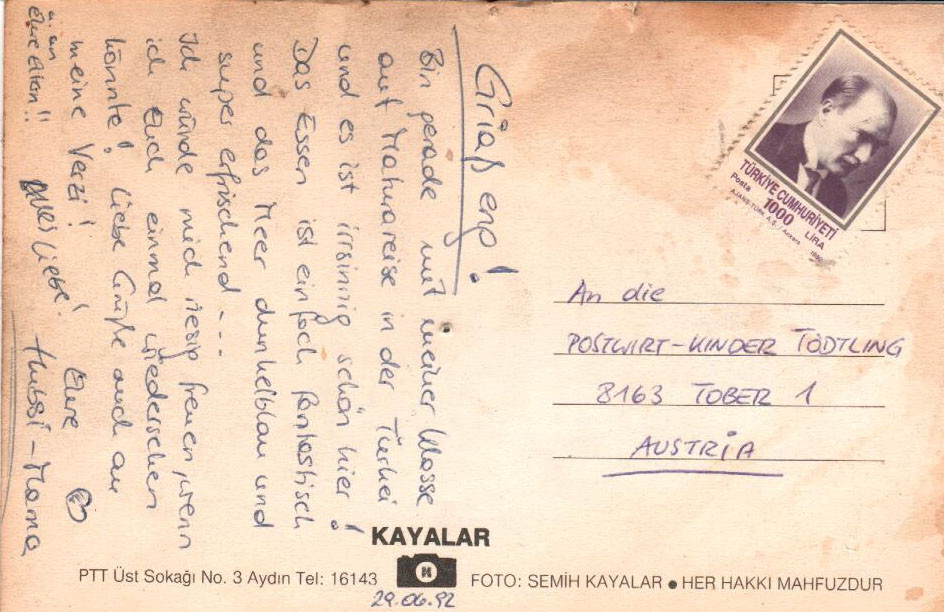 Griaß enp!
Bin gerade mit meiner Klasse
auf Maturareise in der Türkei
und es ist irrsinnig schön hier!
Das Essen ist einfach fantastisch
und das Meer dunkelblau und
super erfrischend...
Ich würde mich riesig freuen, wenn
ich Euch einmal wiedersehen
könnte! Liebe Grüße auch an
meine Verzi!
u. an
Eure Eltern!!
Alles Liebe!
Eure
Hubsi-Mama
TÜRKİYE CUMHURİYETİ
Posta 1000 LİRA
AJANS-TÜRK A.Ş. / Ankara
An die
POSTWIRT-KINDER TÖDTLING
8163 TOBER 1
AUSTRIA
KAYALAR
PTT Üst Sokağı No. 3 Aydın Tel: 16143
K
FOTO: SEMİH KAYALAR ● HER HAKKI MAHFUZDUR
29.06.92